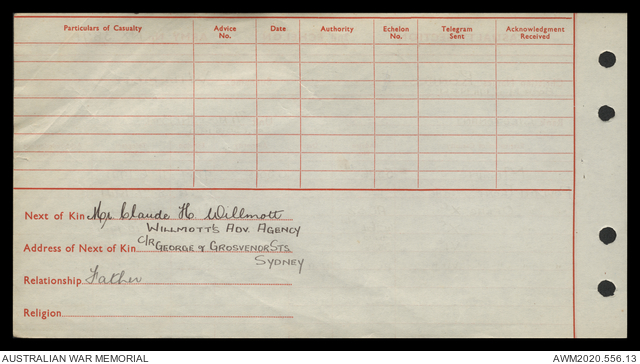 Particulars of Casualty Advice No. Date Authority Echelon No. Telegram Sent Acknowledgment Received
Next of Kin Mr Claude H Willmott
WILLMOTT'S ADV. AGENCY
Address of Next of Kin C/R GEORGE & GROSVENOR STS.
SYDNEY
Relationship Father
Religion
AUSTRALIAN WAR MEMORIAL AWM2020.556.13